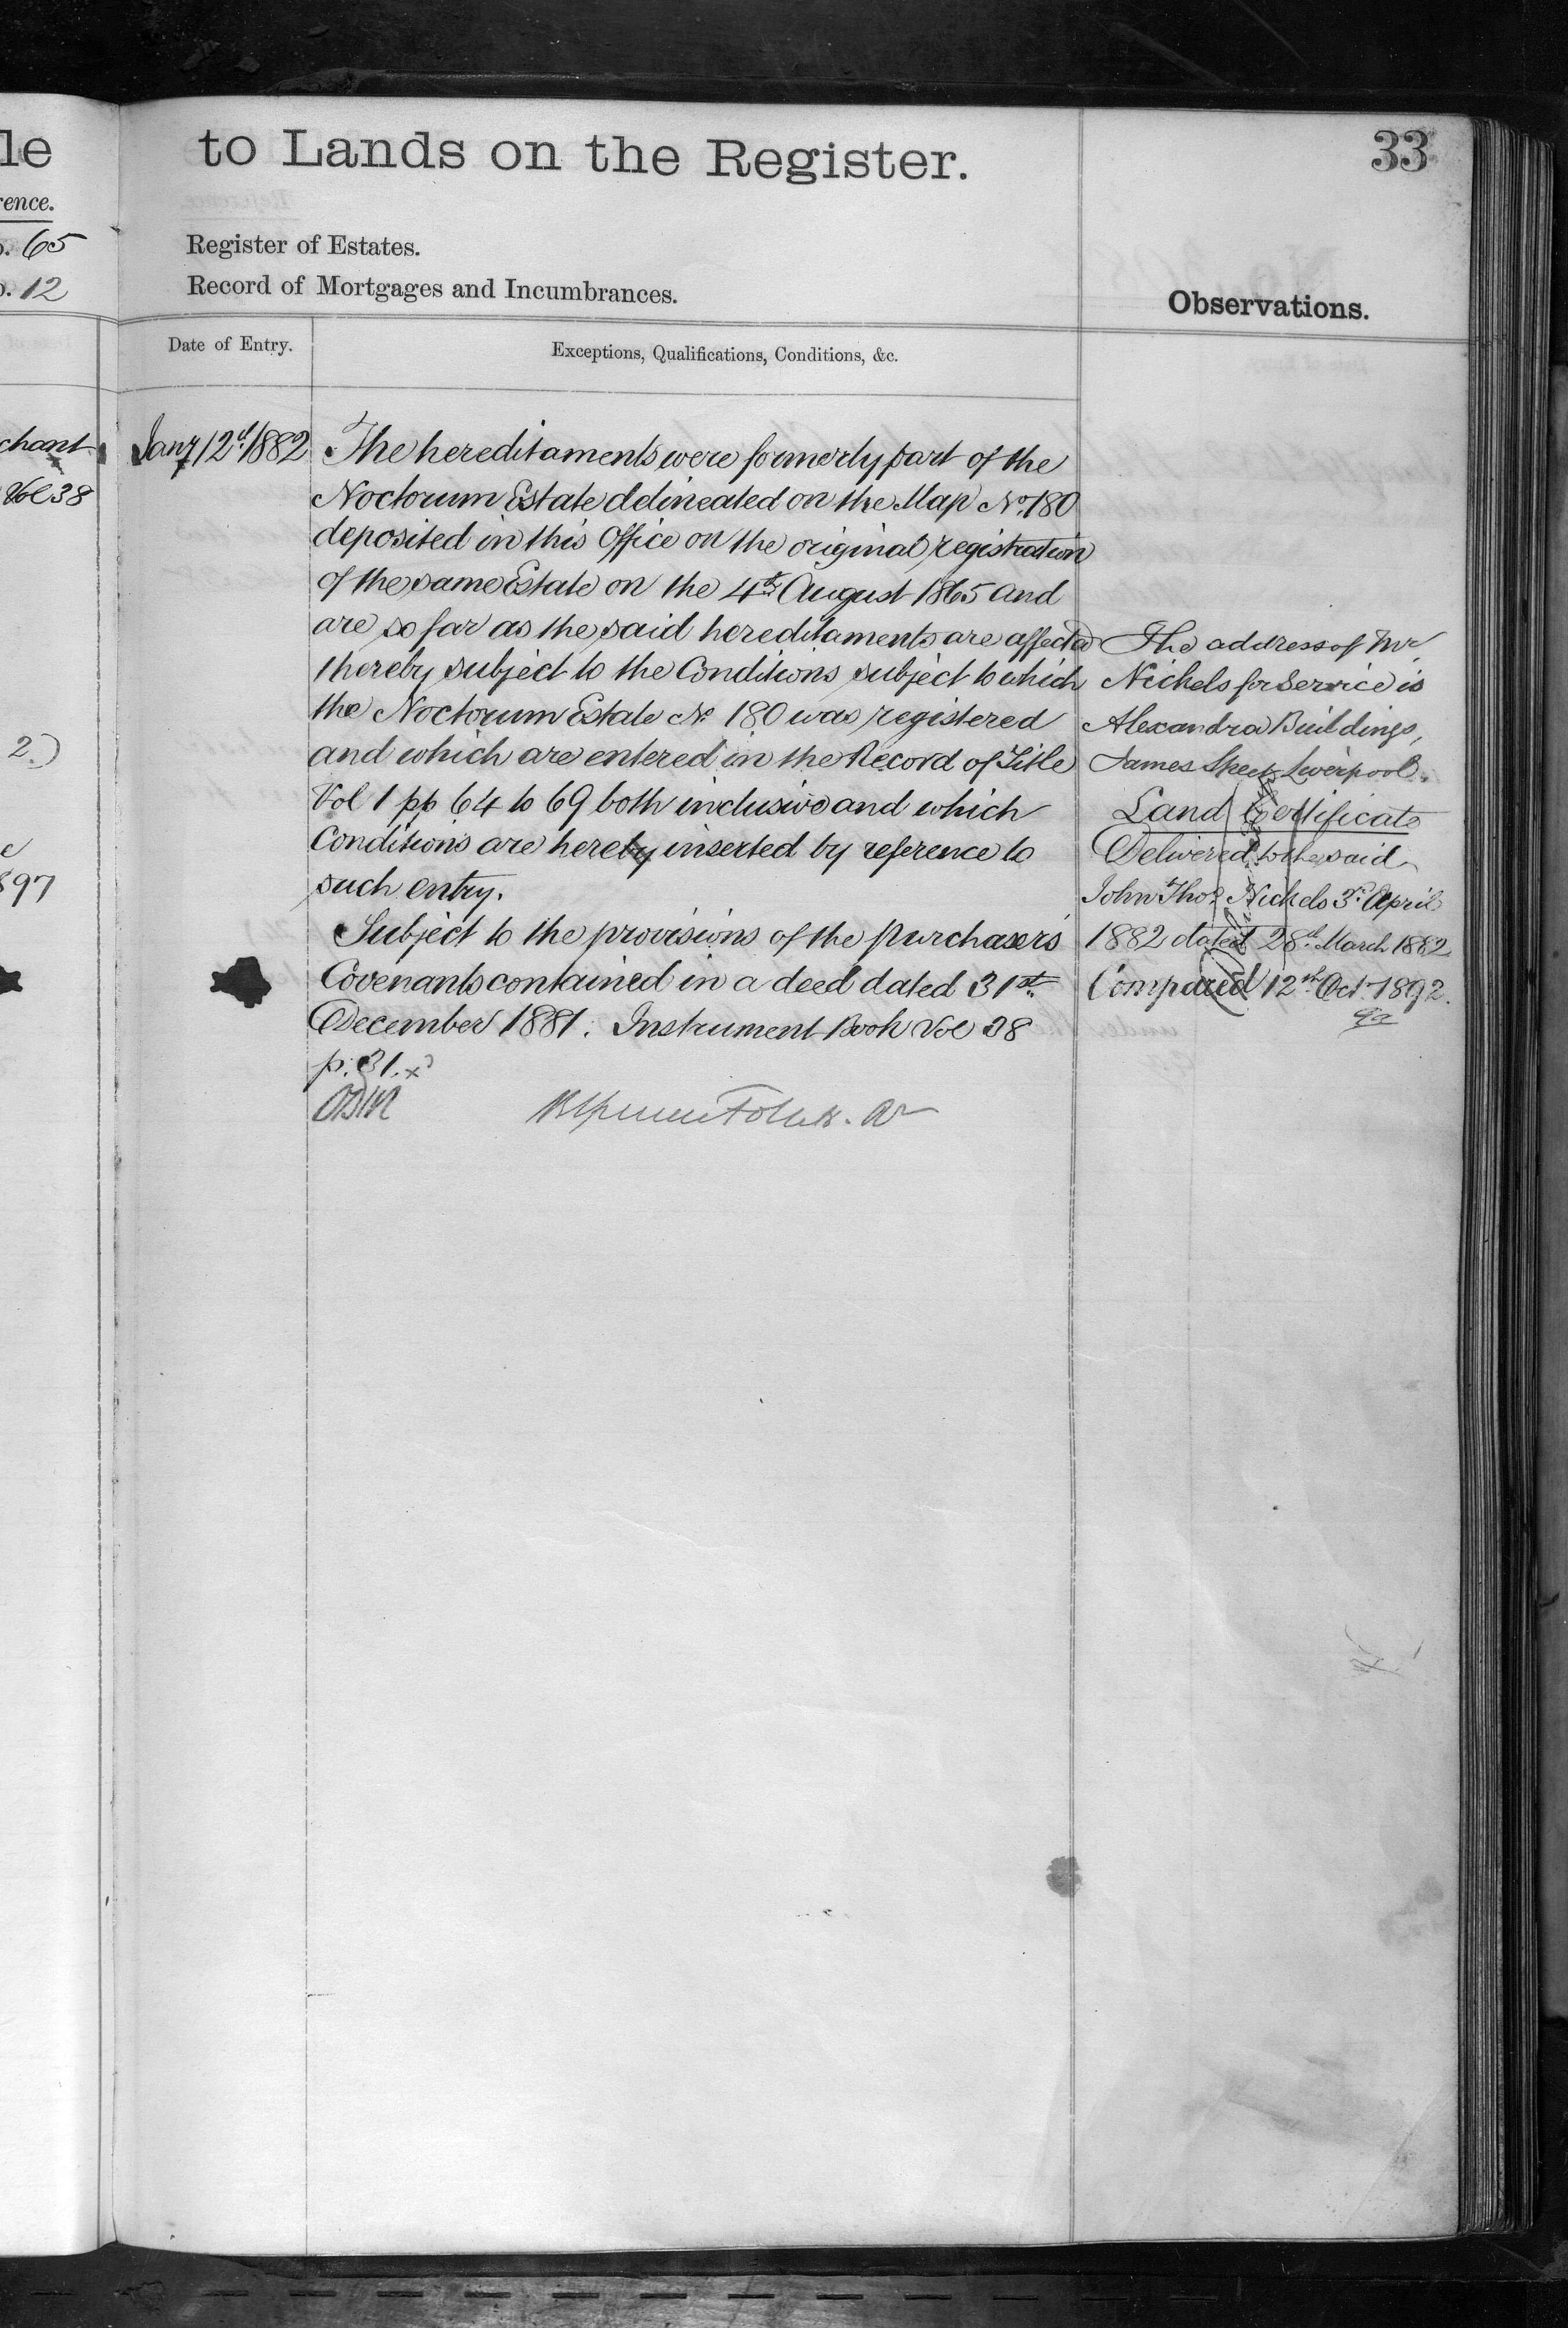 le
rence.
o. 65
o. 12
chant
Vol 38
2.)
e
897
to Lands on the Register.
33
Register of Estates.
Record of Mortgages and Incumbrances.
Observations.
Date of Entry.
Exceptions, Qualifications, Conditions, &c.
Jany 12th 1882
The hereditaments were formerly part of the
Noctorum Estate delineated on the Map No. 180
deposited in this Office on the original registration
of the same Estate on the 4th August 1865 and
are so far as the said hereditaments are affected
thereby subject to the Conditions subject to which
the Noctorum Estate No 180 was registered
and which are entered in the Record of Title
Vol 1 pp 64 to 69 both inclusive and which
Conditions are hereby inserted by reference to
such entry.
Subject to the provisions of the purchasers
Covenants contained in a deed dated 31st
December 1881. Instrument Book Vol 38
p. 31. x
The address of Mr
Nichels for service is
Alexandra Buildings,
James Street Liverpool.
Land Certificate
Delivered to the said
John Thos. Nichels 3rd April
1882 dated 28th March 1882
Compared 12th Oct. 1892.